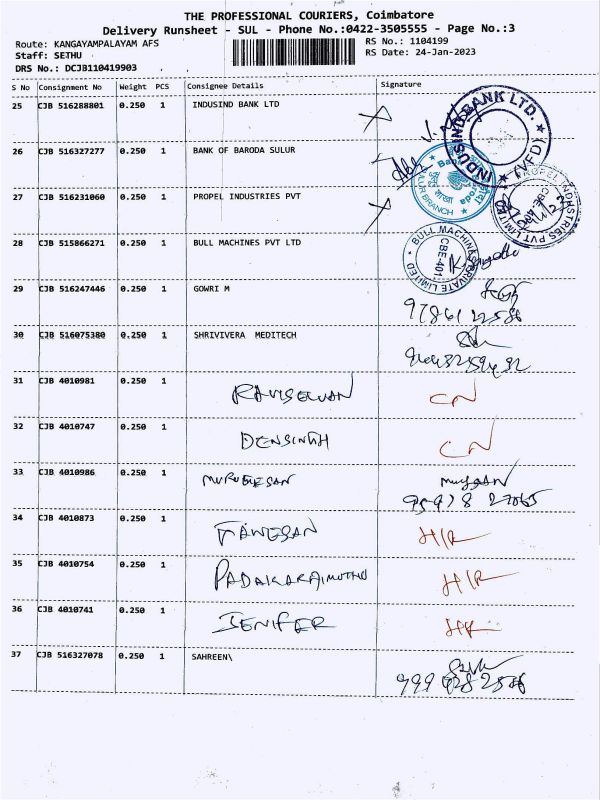 THE PROFESSIONAL COURIERS, Coimbatore
Delivery Runsheet - SUL - Phone No.:0422-3505555 - Page No.:3
Route: KANGAYAMPALAYAM AFS
RS No.: 1104199
Staff: SETHU
RS Date: 24-Jan-2023
DRS No.: DCJB110419903
S No Consignment No Weight PCS Consignee Details Signature
25 CJB 516288801 0.250 1 INDUSIND BANK LTD
INDUSIND BANK LTD. ★ (VFU) ★
26 CJB 516327277 0.250 1 BANK OF BARODA SULUR
27 CJB 516231060 0.250 1 PROPEL INDUSTRIES PVT
PROPEL INDUSTRIES PVT LIMITED
28 CJB 515866271 0.250 1 BULL MACHINES PVT LTD
BULL MACHINES PRIVATE LIMITED CBE-401
29 CJB 516247446 0.250 1 GOWRI M
30 CJB 516075380 0.250 1 SHRIVIVERA MEDITECH
31 CJB 4010981 0.250 1 RAVISELVAN CN
32 CJB 4010747 0.250 1 DENSINTH CN
33 CJB 4010986 0.250 1 MURUGESAN
34 CJB 4010873 0.250 1 H/R
35 CJB 4010754 0.250 1 H/R
36 CJB 4010741 0.250 1 JENIFER
37 CJB 516327078 0.250 1 SAHREEN\